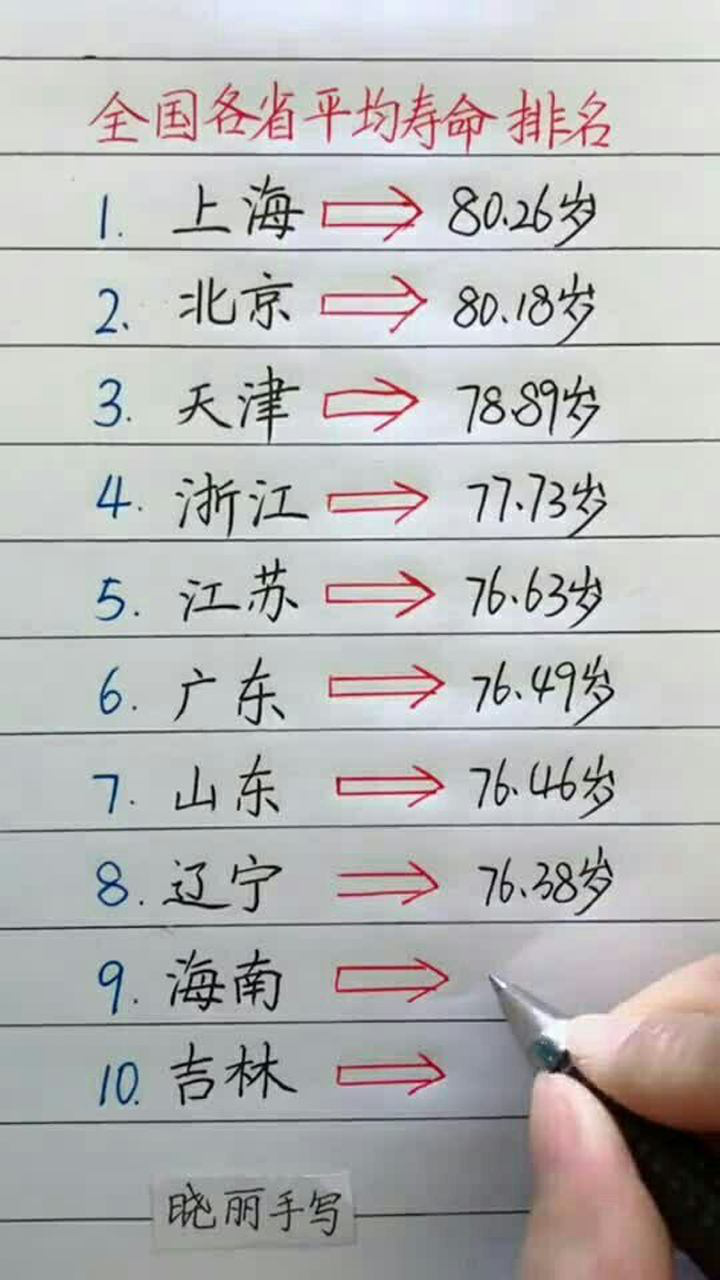 全国各省平均寿命排名
1. 上海 ⇨ 80.26岁
2. 北京 ⇨ 80.18岁
3. 天津 ⇨ 78.89岁
4. 浙江 ⇨ 77.73岁
5. 江苏 ⇨ 76.63岁
6. 广东 ⇨ 76.49岁
7. 山东 ⇨ 76.46岁
8. 辽宁 ⇨ 76.38岁
9. 海南 ⇨
10. 吉林 ⇨
晓丽手写